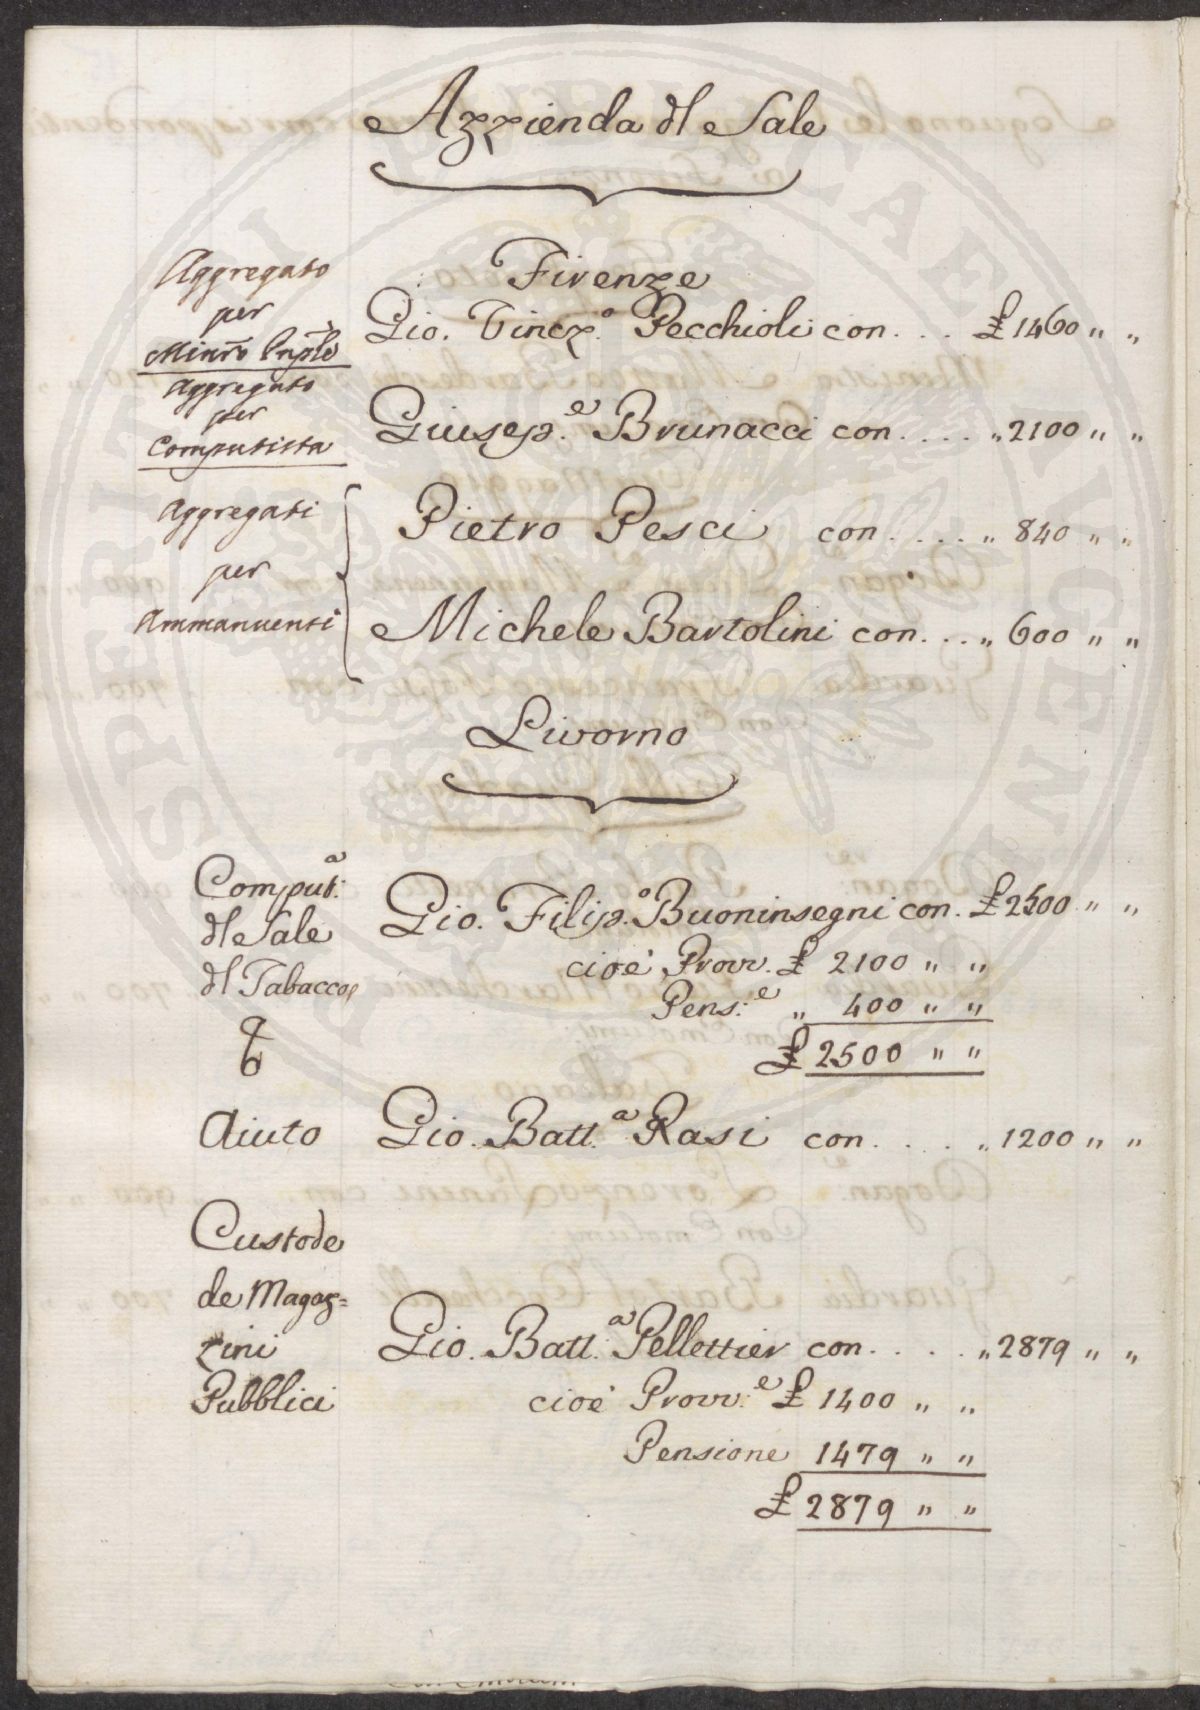 Azzienda dl Sale
Firenze
Aggregato
per
Minro Pnple
Gio. Vincz.o Pecchioli con . . . £ 1460 " "
Aggregato
per
Computista
Giusep.e Brunacci con . . . . " 2100 " "
Aggregati
per
Ammanuensi
Pietro Pesci con . . . . " 840 " "
Michele Bartolini con . . . " 600 " "
Livorno
Comput:a
dl Sale
dl Tabacco
Gio. Filip.o Buoninsegni con . £ 2500 " "
cioè Provv. £ 2100 " "
Pens:e " 400 " "
£ 2500 " "
Aiuto Gio. Batt.a Rasi con . . . . " 1200 " "
Custode
de Magaz=
zini
Pubblici
Gio. Batt.a Pellettier con . . . . " 2879 " "
cioè Provv:e £ 1400 " "
Pensione 1479 " "
£ 2879 " "